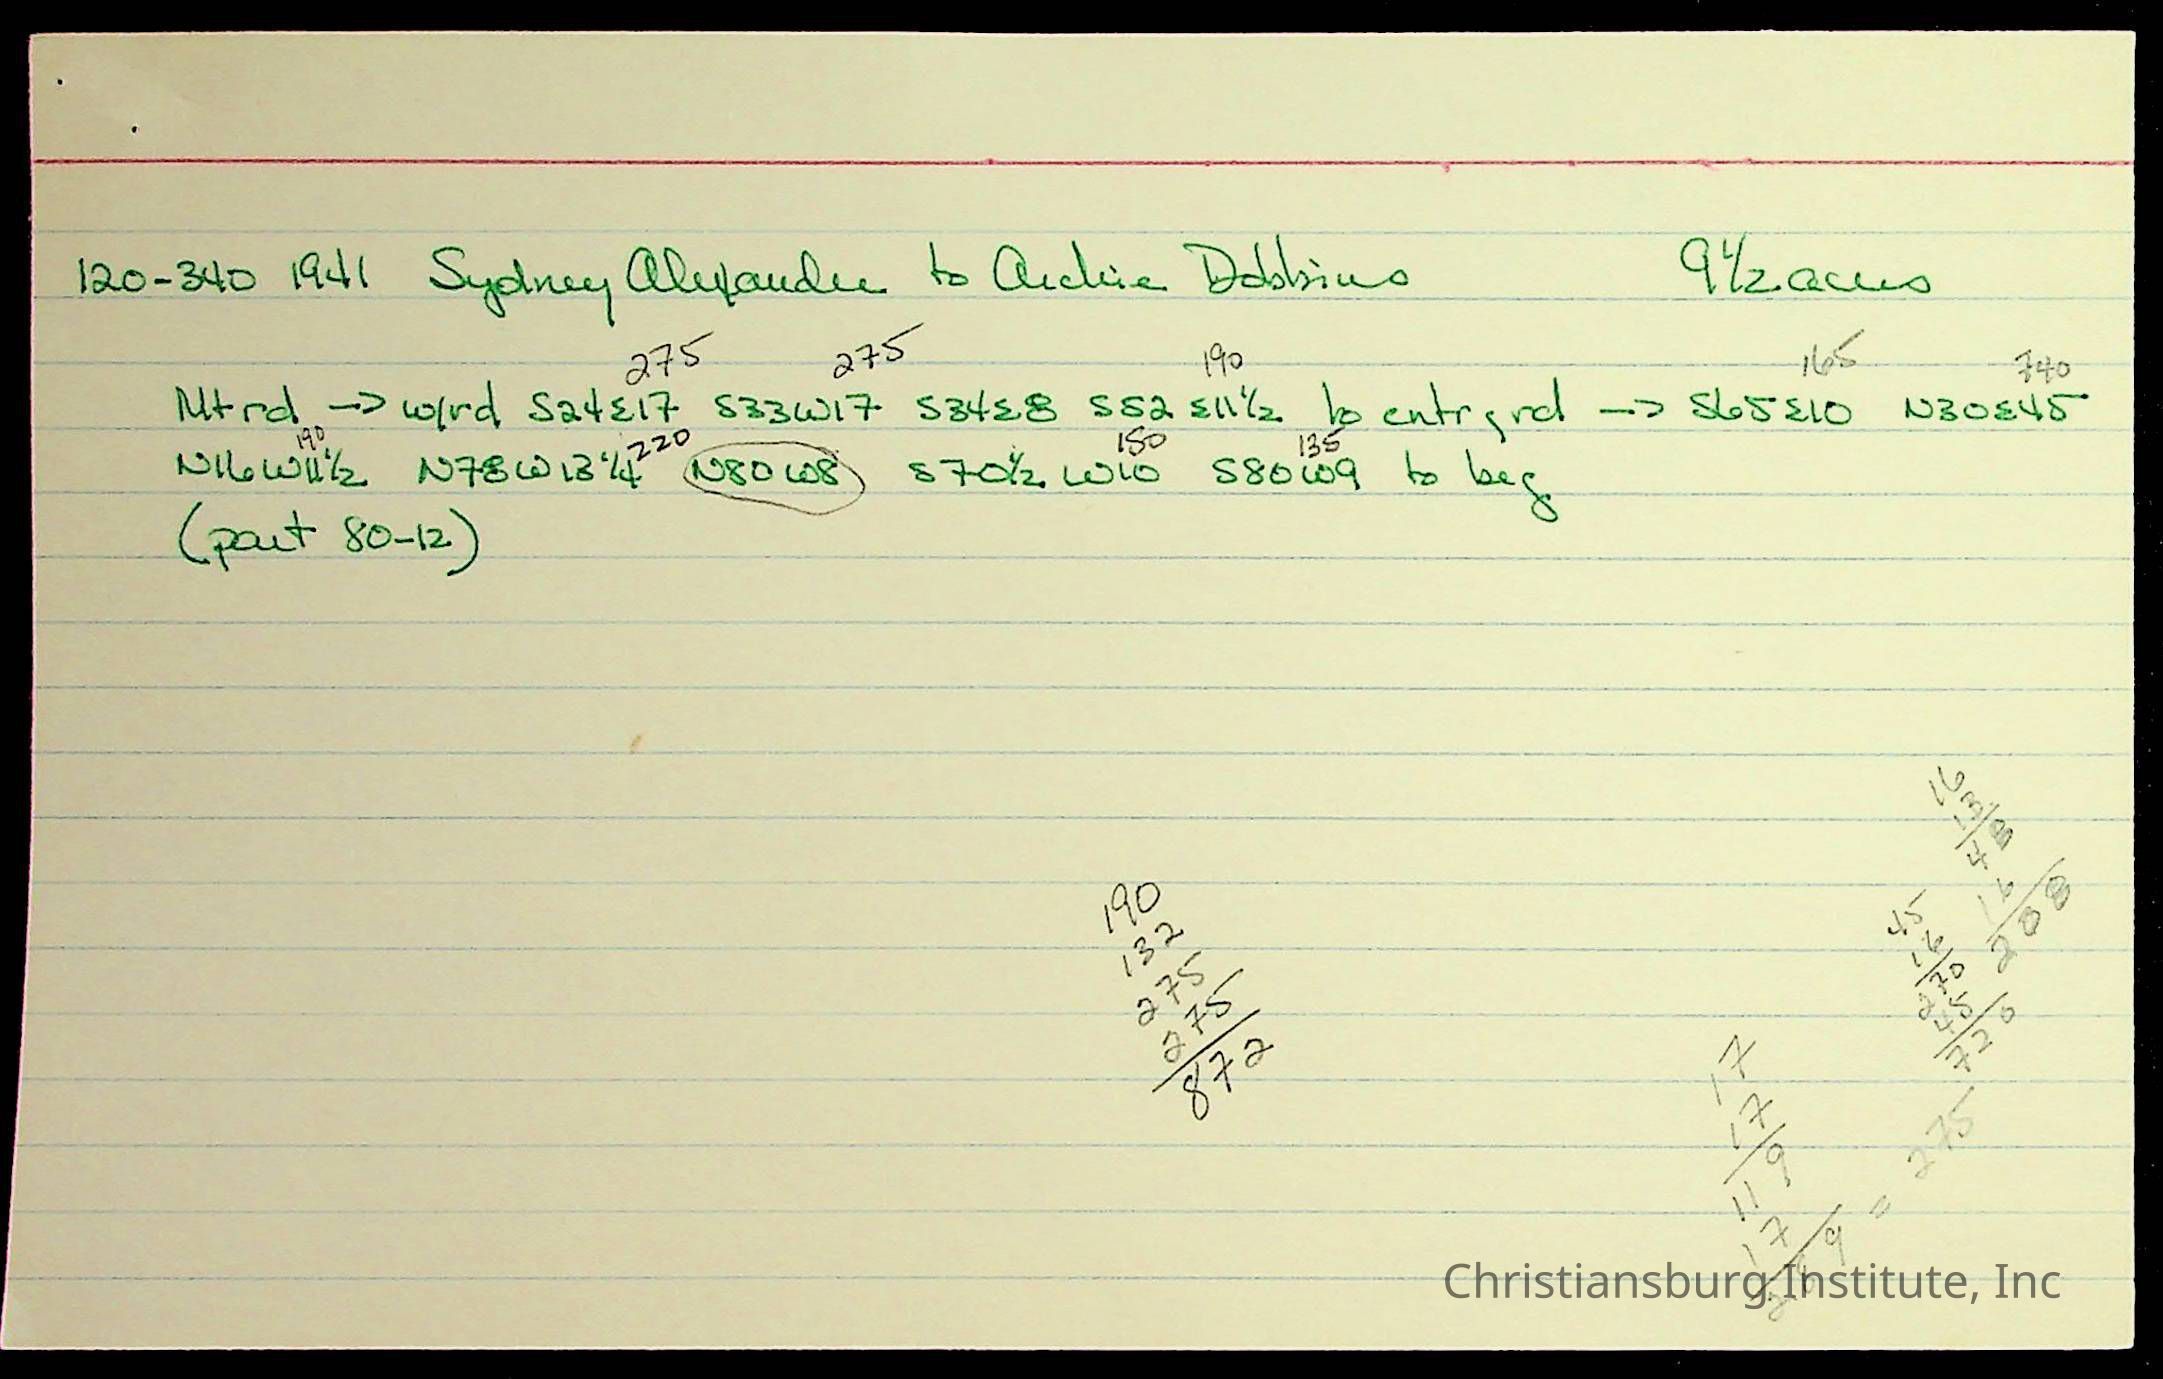 120-340 1941 Sydney Alexander to Archie Dobbins 9 1/2 acres
275 275 190 165 740
Mt rd -> w/rd S24E17 S33W17 S34E8 S52E11 1/2 to cntr grd -> S65E10 N30E45
190 220 150 135
N16W11 1/2 N78W13 1/4 N80W8 S70 1/2 W10 S80W9 to beg
(part 80-12)
190
132
275
275
872
16
13
48
16
288
45
16
270
45
720
17
17
119
17
289 = 275
Christiansburg Institute, Inc